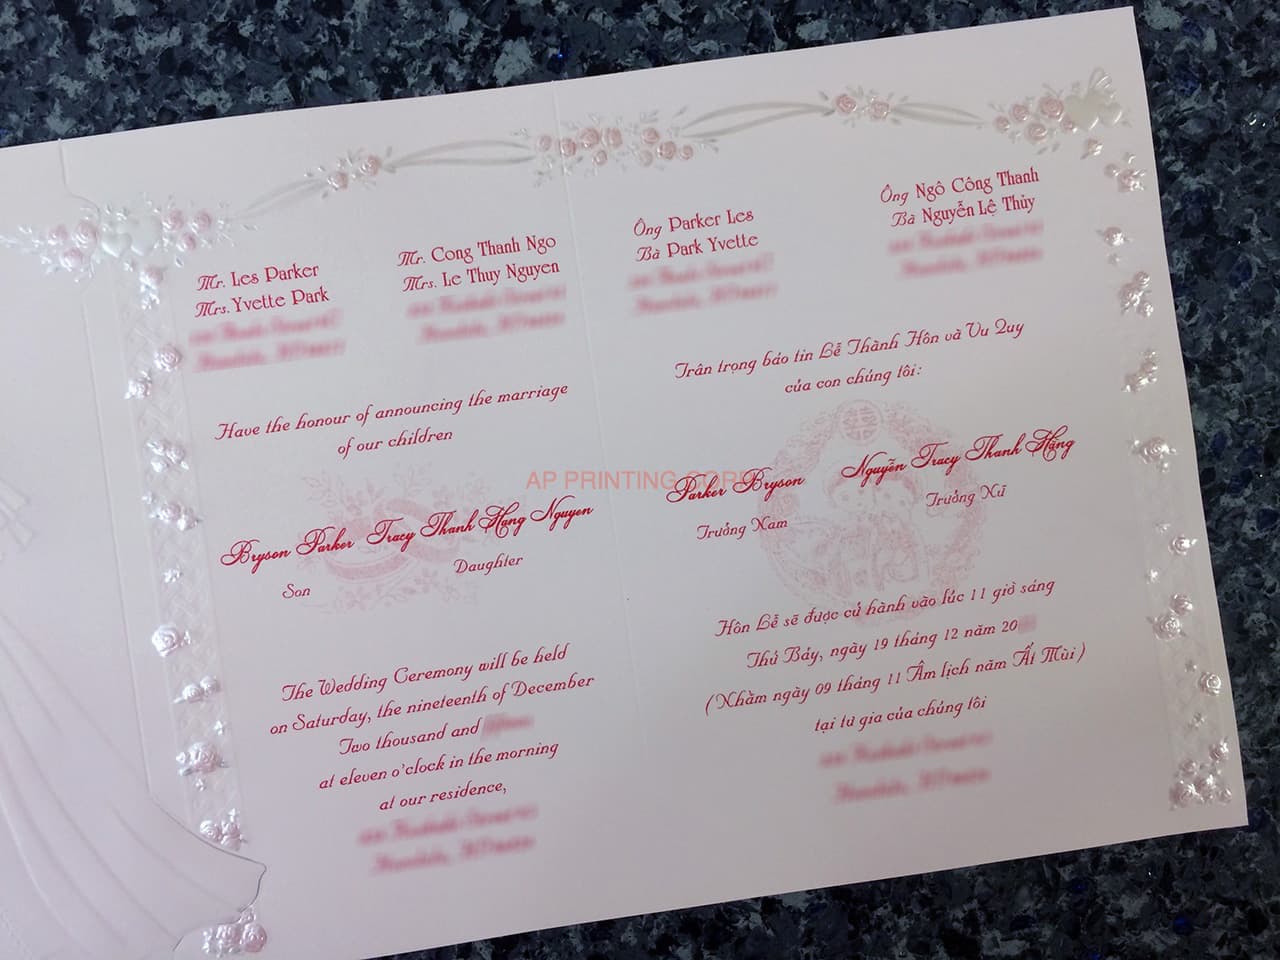 Mr. Les Parker
Mrs. Yvette Park
Mr. Cong Thanh Ngo
Mrs. Le Thuy Nguyen
Have the honour of announcing the marriage
of our children
Bryson Parker Tracy Thanh Hang Nguyen
Son
Daughter
The Wedding Ceremony will be held
on Saturday, the nineteenth of December
Two thousand and
at eleven o'clock in the morning
at our residence,
Ông Parker Les
Bà Park Yvette
Ông Ngô Công Thanh
Bà Nguyễn Lệ Thủy
Trân trọng báo tin Lễ Thành Hôn và Vu Quy
của con chúng tôi:
Parker Bryson
Nguyễn Tracy Thanh Hằng
Trưởng Nam
Trưởng Nữ
Hôn Lễ sẽ được cử hành vào lúc 11 giờ sáng
Thứ Bảy, ngày 19 tháng 12 năm 20
(Nhằm ngày 09 tháng 11 Âm lịch năm Ất Mùi)
tại tư gia của chúng tôi
AP PRINTING CORP